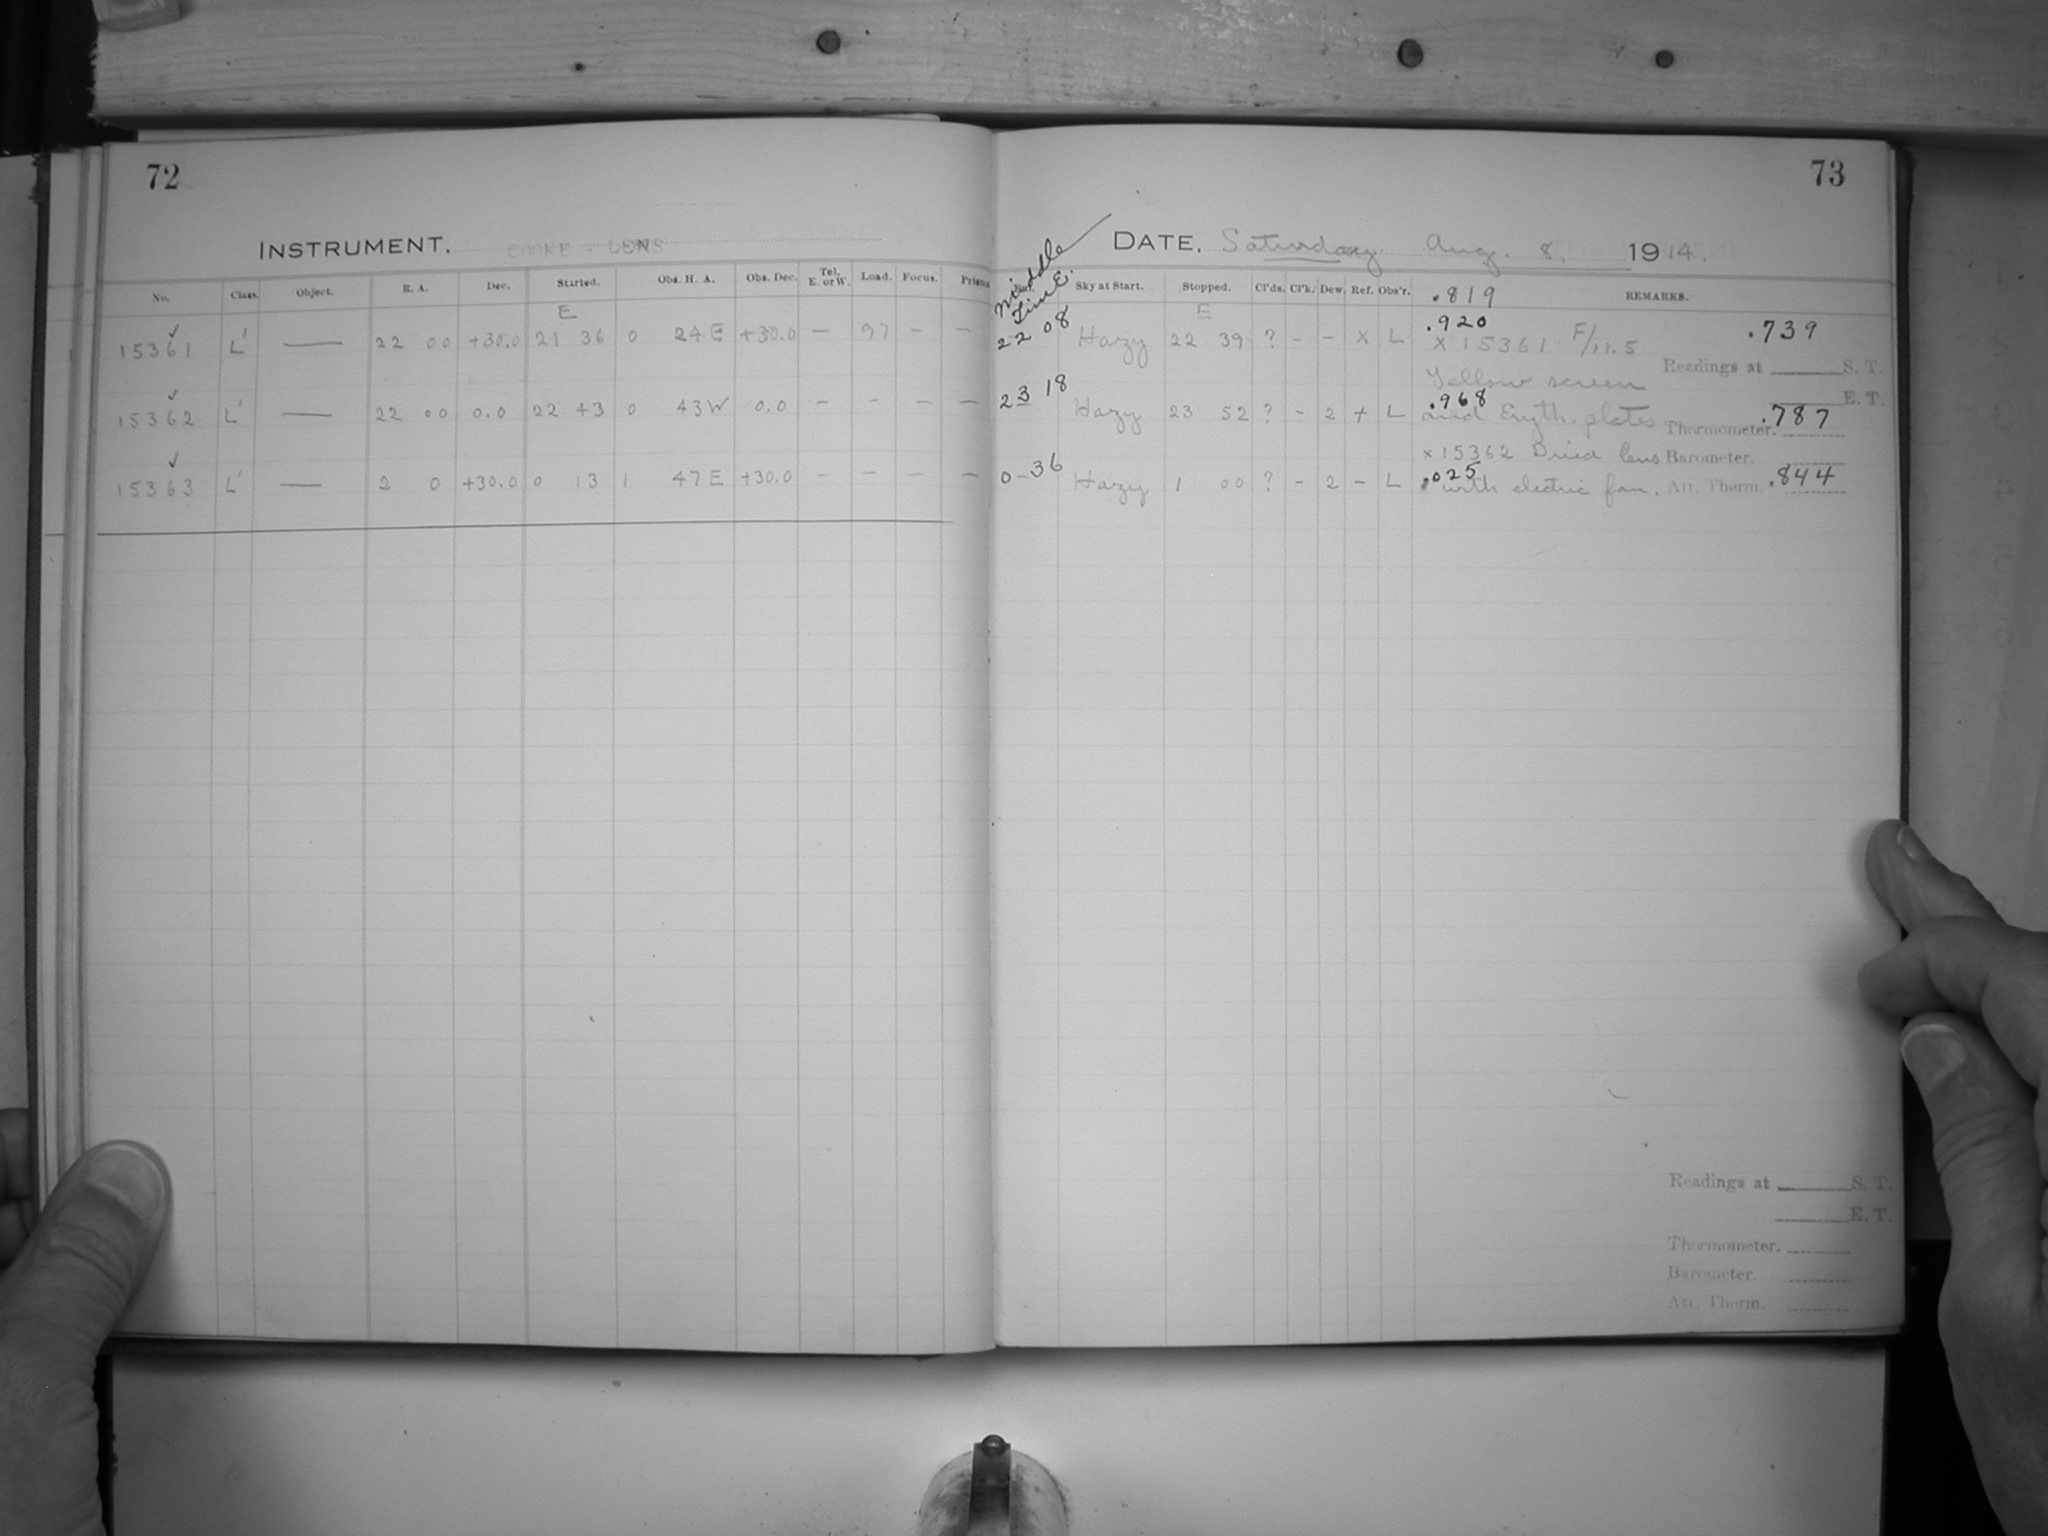 72
INSTRUMENT. COOKE LENS
No. Class. Object. R. A. Dec. Started. Obs. H. A. Obs. Dec. Tel. E. or W. Load. Focus. Prisms
E
15361 L' — 22 00 +30.0 21 36 0 24 E +30.0 — 97 - —
15362 L' — 22 00 0.0 22 43 0 43 W 0.0 - - - —
15363 L' — 2 0 +30.0 0 13 1 47 E +30.0 - - - —
73
DATE. Saturday Aug. 8. 1914.
Middle Time.
Sky at Start. Stopped. Cl'ds. Cl'k. Dew. Ref. Obs'r. .819 REMARKS.
E
22 08 Hazy 22 39 ? - - x L .920 .739
x 15361 F/11.5
Readings at S. T.
Yellow screen
E. T.
23 18 Hazy 23 52 ? - 2 + L .968 .787
and Eryth. plates Thermometer.
x 15362 Dried lens Barometer.
0-36 Hazy 1 00 ? - 2 - L .025 .844
with electric fan. Att. Therm.
Readings at S. T.
E. T.
Thermometer.
Barometer.
Att. Therm.